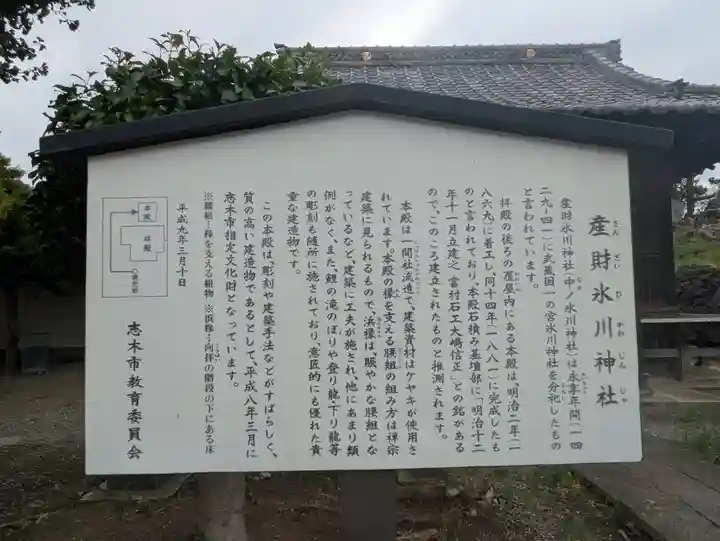 産財氷川神社
さんざいひかわじんじゃ
産財氷川神社(中ノ氷川神社)は、永享年間(一四
二九‐四一)に武蔵国一の宮氷川神社を分祀したもの
と言われています。
拝殿の後ろの覆屋内にある本殿は、明治二年(一
八六九)に着工し、同十四年(一八八一)に完成したも
のと言われており、本殿石積み基壇部に「明治十二
年十一月立建之 當村石工大嶋信正」との銘がある
ので、このころ建立されたものと推測されます。
本殿は、一間社流造で、建築資材はケヤキが使用さ
れています。本殿の椽を支える腰組の組み方は禅宗
建築に見られるもので、浜椽は、賑やかな腰組とな
っているなど、建築に工夫が施され、他にあまり類
例がなく、また、鯉の滝のぼりや登り龍、下り龍等
の彫刻も随所に施されており、意匠的にも優れた貴
重な建造物です。
この本殿は、彫刻や建築手法などがすばらしく、
質の高い建造物であるとして、平成八年三月に
志木市指定文化財となっています。
※腰組…椽を支える組物 ※浜椽…向拝の階段の下にある床
平成九年三月十日
志木市教育委員会
本殿
拝殿